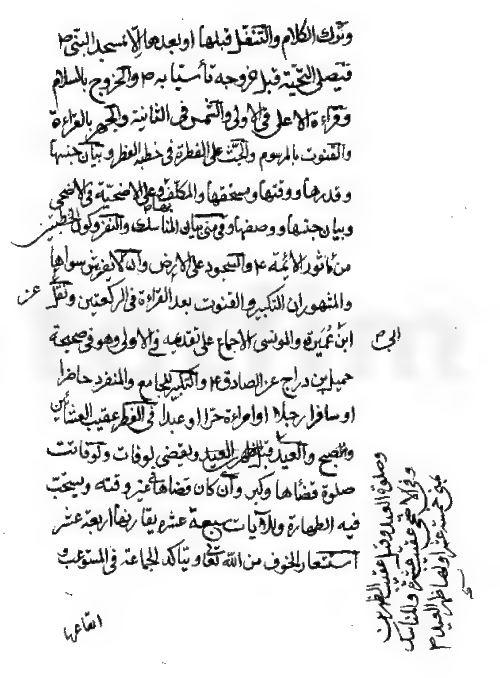 وترك الكلام والتنفل قبلها او بعدها الا بمسجد النبي ص
فيصلي التحية قبل خروجه تأسيا به ص والخروج بالسلام
وقراءة الاعلى في الاولى والشمس في الثانية والجهر بالقراءة
والقنوت بالمرسوم والحث على الفطرة في خطبة الفطر وبيان جنسها
وقدرها ووقتها ومستحقها والمكلف بها وعلى الاضحية في الاضحى
وبيان جنسها ووصفها وفي منى بيان المناسك والنفر وكون الخطبتين
من مأثور الائمة ع والسجود على الارض وان لا يفرش سواها
والمشهور ان التكبير والقنوت بعد القراءة في الركعتين ونقل
عن
ابن عميرة والمونسي الاجماع على تقديمه في الاولى وهو في صحيحة
الى ص
جميل بن دراج عن الصادق ع والتكبير للجامع والمنفرد حاضرا
او مسافرا رجلا او امراة حرا او عبدا في الفطر عقيب العشائين
والصبح والعيد ويقضى لو فات ولو فاتت
صلوة قضاها وكبر وان كان قضاها في غير وقته ويستحب
فيه الطهارة وللآيات سبعة عشر يقارنها اربعة عشر
استشعار الخوف من الله تعالى وتأكد الجماعة في المستوعب و
ايقاعها
وصلوة العيد وقيل عقيب الظهرين
وفي الاضحى عقيب عشرة وللناسك
بمنى خمسة عشر اولها ظهر العيد